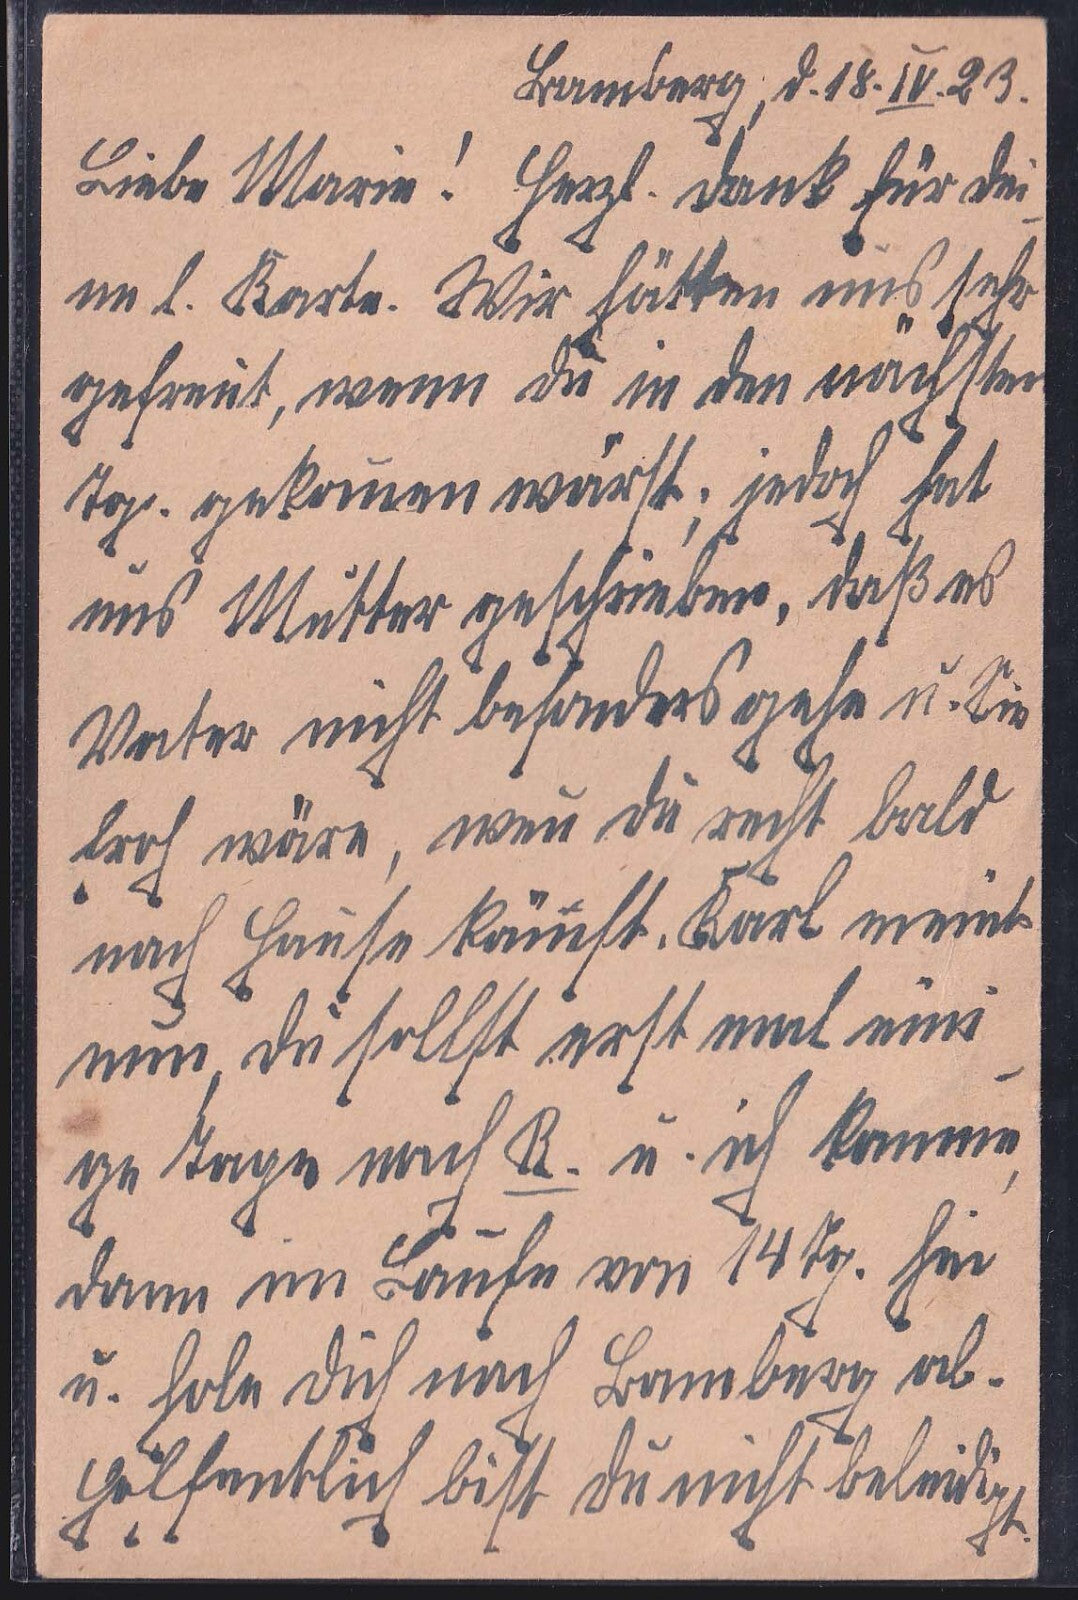 Bamberg, d. 18. IV. 23.
Liebe Marie! Herzl. Dank für dei-
ne l. Karte. Wir hätten uns sehr
gefreut, wenn du in den nächsten
Tg. gekom̅en wärst, jedoch hat
uns Mutter geschrieben, daß es
Vater nicht besonders gehe u. Sie
froh wäre, wen̅ du recht bald
nach Hause käm̅st. Karl meint
nun, du sollst erst mal eini-
ge Tage nach R. u. ich komme,
dann im Laufe von 14 Tg. hin
u. hole dich nach Bamberg ab.
Hoffentlich bist du nicht beleidigt.